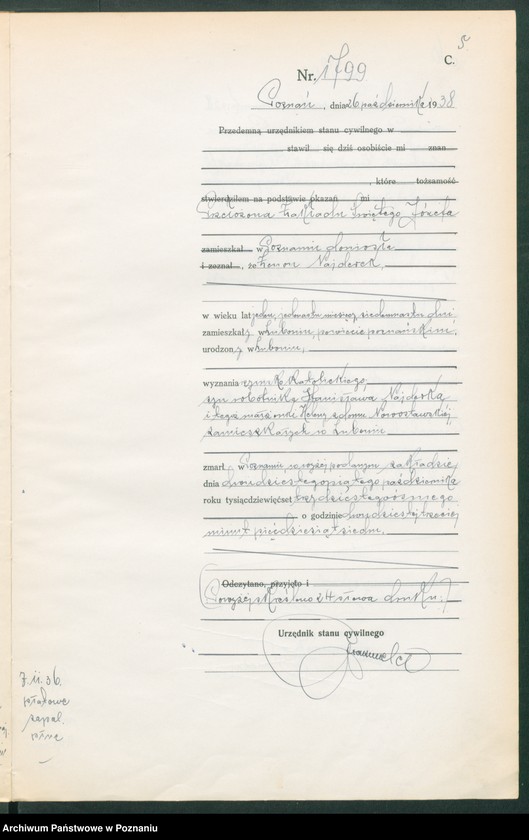 C.
5
Nr. 1799
Poznań, dnia 26 października 1938
Przedemną urzędnikiem stanu cywilnego w
stawił się dziś osobiście mi znan
, które tożsamość
stwierdziłem na podstawie okazan mi
Przełożona Zakładu Świętego Józefa
zamieszkał w Poznaniu doniosła
i zeznał, że Zenon Najderek,
w wieku lat jeden, jedenaście miesięcy, siedemnaście dni,
zamieszkały w Luboniu, powiecie poznańskim,
urodzony w Luboniu,
wyznania rzymsko katolickiego,
syn robotnika Stanisława Najderka
i tegoż małżonki Heleny z domu
zamieszkałych w Luboniu
zmarł w Poznaniu, w wyżej podanym zakładzie
dnia dwudziestego piątego października
roku tysiącdziewięćset trzydziestego ósmego
o godzinie dwudziestej trzeciej
minut pięćdziesiąt siedem.
Odczytano, przyjęto i
Powyżej skreślono 24 słowa druku.
Urzędnik stanu cywilnego
7.11.36.
płatowe
zapal.
płuc
Archiwum Państwowe w Poznaniu